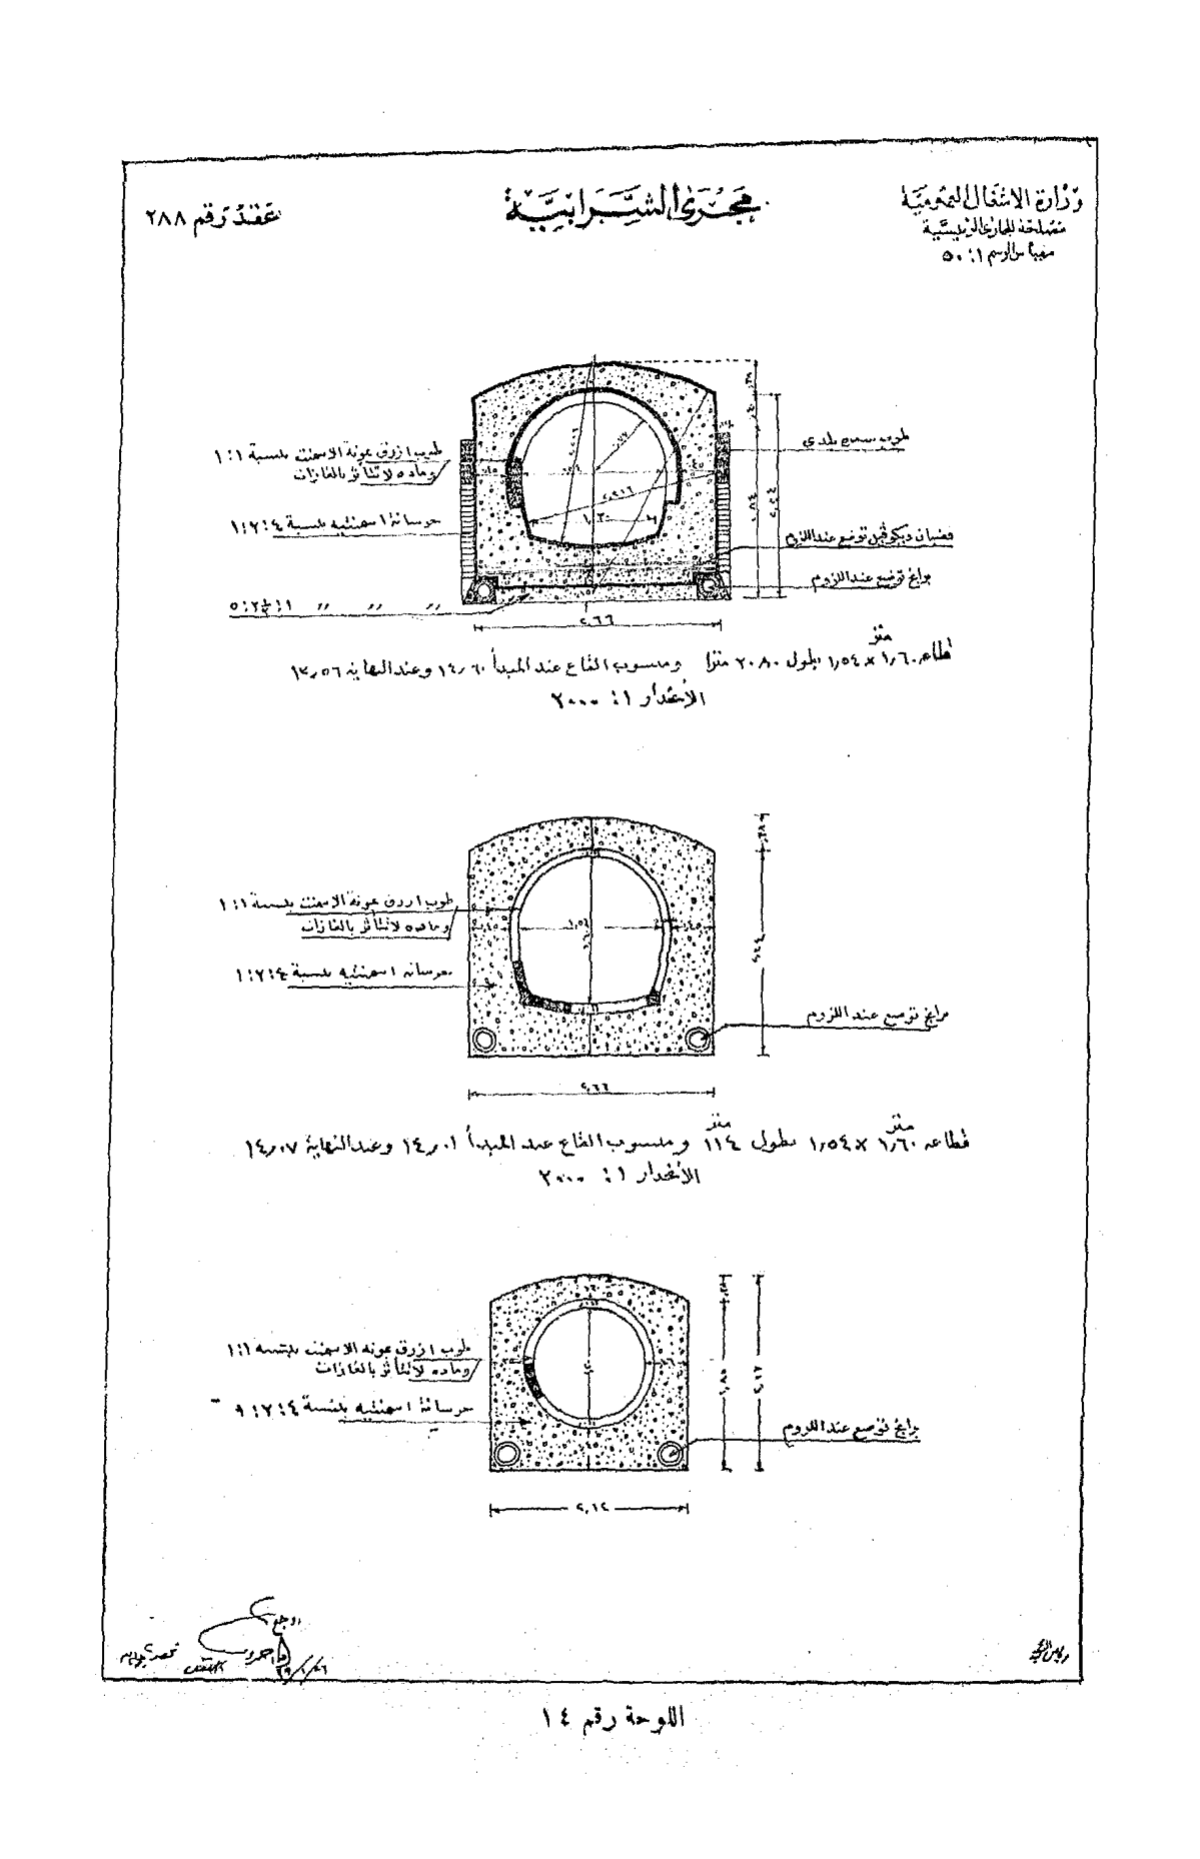 وزارة الاشغال العمومية
مصلحة المجاري الرئيسية
مقياس الرسم ١ : ٥٠
مجرى الشرابية
عقد رقم ٢٨٨
طوب ازرق بمونة الاسمنت بنسبة ١:١
وماده لاتتأثر بالغازات
خرسانة اسمنتيه بنسبة ١:٢:٤
١ : ٢½ : ٥ " " "
طوب بلدي
قضبان ديكوفيل توضع عند اللزوم
برابخ توضع عند اللزوم
٢,٦٦
قطاعه ١,٦٠ × ١,٥٤ متر بطول ٢٠٨٠ مترا ومنسوب القاع عند المبدأ ١٤,٦٠ وعند النهاية ١٣,٥٦
الأنحدار ١ : ٢٠٠٠
طوب ازرق بمونة الاسمنت بنسبة ١:١
وماده لاتتأثر بالغازات
خرسانه اسمنتيه بنسبة ١:٢:٤
برابخ توضع عند اللزوم
٢,٦٦
قطاعه ١,٦٠ × ١,٥٤ متر بطول ١١٤ متر ومنسوب القاع عند المبدأ ١٤,٠١ وعند النهاية ١٤,٠٧
الأنحدار ١ : ٢٠٠٠
طوب ازرق بمونه الاسمنت بنسبه ١:١
وماده لاتتأثر بالغازات
خرسانة اسمنتيه بنسبة ٤:٢:٩
برابخ توضع عند اللزوم
٢,١٢
اللوحة رقم ١٤